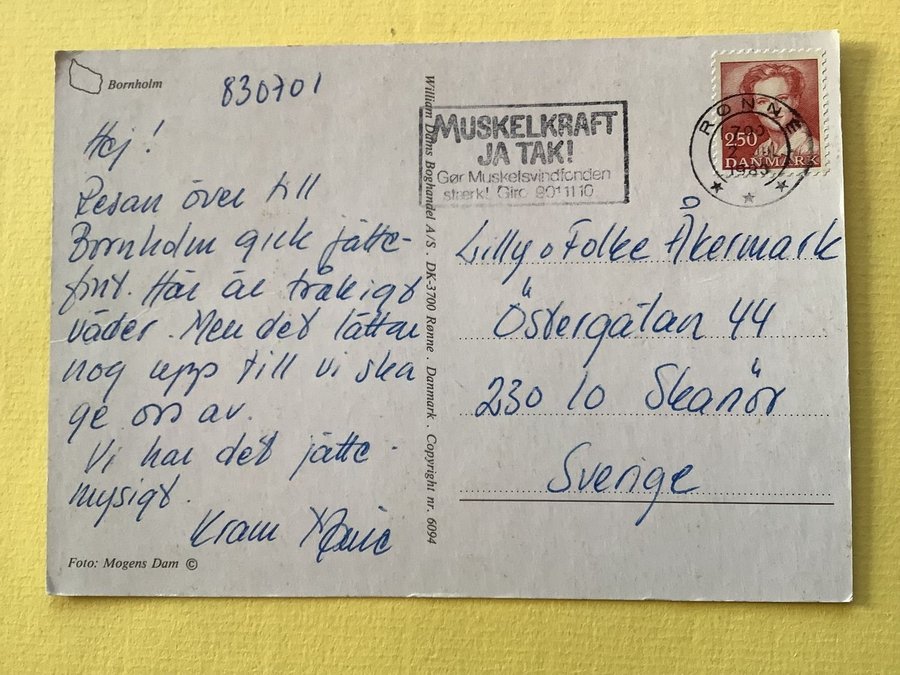 Bornholm
830701
Hej!
Resan över till
Bornholm gick jätte-
fint. Här är tråkigt
väder. Men det lättar
nog upp till vi ska
ge oss av.
Vi har det jätte-
mysigt.
Kram
Foto: Mogens Dam ©
William Dams Boghandel A/S . DK-3700 Rønne . Danmark . Copyright nr. 6094
MUSKELKRAFT
JA TAK!
Gør Muskelsvindfonden
stærk! Giro 9011110
RØNNE
1983
2.50
DANMARK
Lilly o Folke Åkermark
Östergatan 44
230 10 Skanör
Sverige